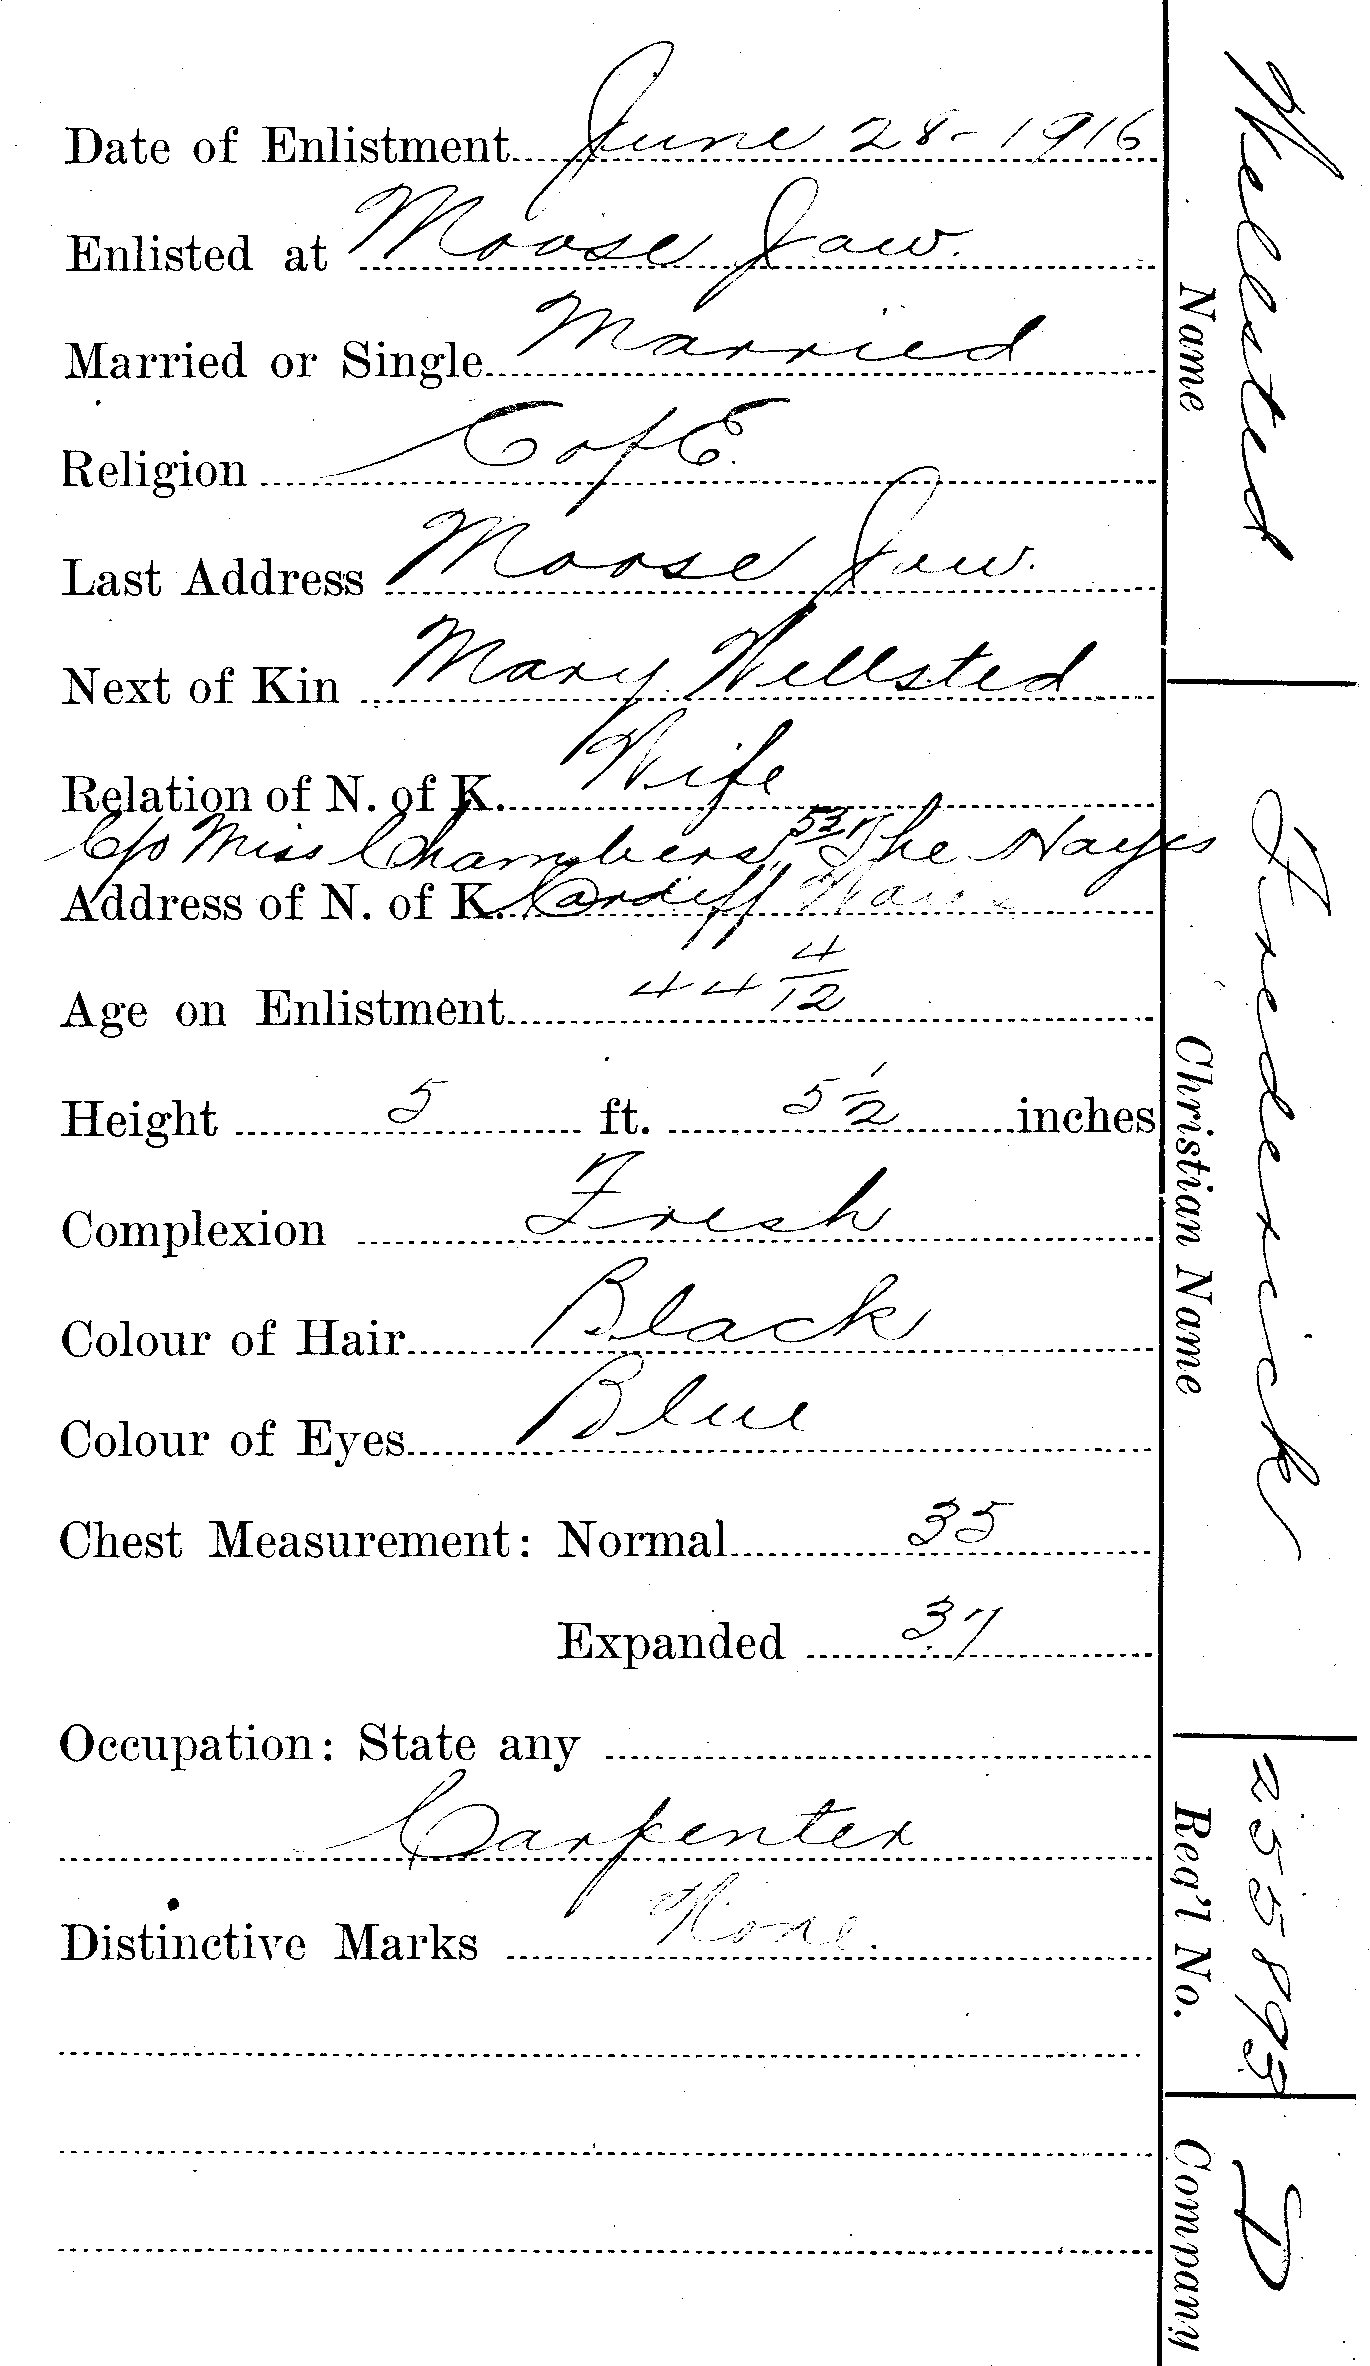 Date of Enlistment June 28-1916
Enlisted at Moose Jaw.
Married or Single Married
Religion C of E.
Last Address Moose Jaw.
Next of Kin Mary Wellsted
Relation of N. of K. Wife
C/o Miss Chambers, 53 The Hayes
Address of N. of K. Cardiff
Age on Enlistment 44 4/12
Height 5 ft. 5 1/2 inches
Complexion Fresh
Colour of Hair Black
Colour of Eyes Blue
Chest Measurement: Normal 35
Expanded 37
Occupation: State any
Carpenter
Distinctive Marks None.
Wellsted
Name
Frederick
Christian Name
255893
Req'l No.
D
Company